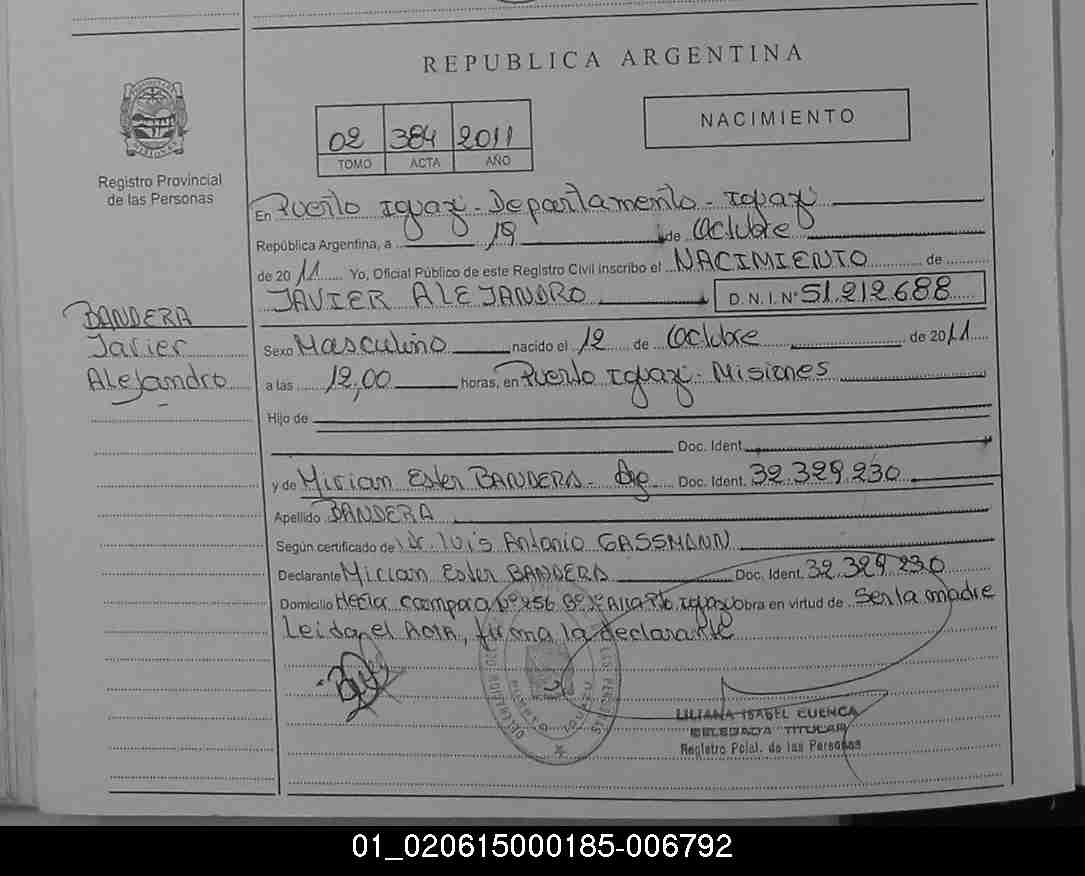 REPUBLICA ARGENTINA
NACIMIENTO
02 384 2011
TOMO ACTA AÑO
Registro Provincial
de las Personas
En Puerto Iguazú - Departamento - Iguazú
República Argentina, a 19 de Octubre
de 2011 Yo, Oficial Público de este Registro Civil inscribo el NACIMIENTO de
JAVIER ALEJANDRO D.N.I.Nº 51.212.688
BANDERA
Javier
Alejandro
Sexo Masculino nacido el 12 de Octubre de 2011
a las 12,00 horas, en Puerto Iguazú - Misiones
Hijo de
Doc. Ident.
y de Mirian Ester BANDERA - Arg Doc. Ident. 32.329.230
Apellido BANDERA
Según certificado de Dr. Luis Antonio GASSMANN
Declarante Mirian Ester BANDERA Doc. Ident. 32.329.230
Domicilio Nº 256 Bº Iguazú obra en virtud de Ser la madre
Leida el Acta, firma la declarante
PUERTO IGUAZU
LILIANA ISABEL CUENCA
DELEGADA TITULAR
Registro Pcial. de las Personas
01_020615000185-006792